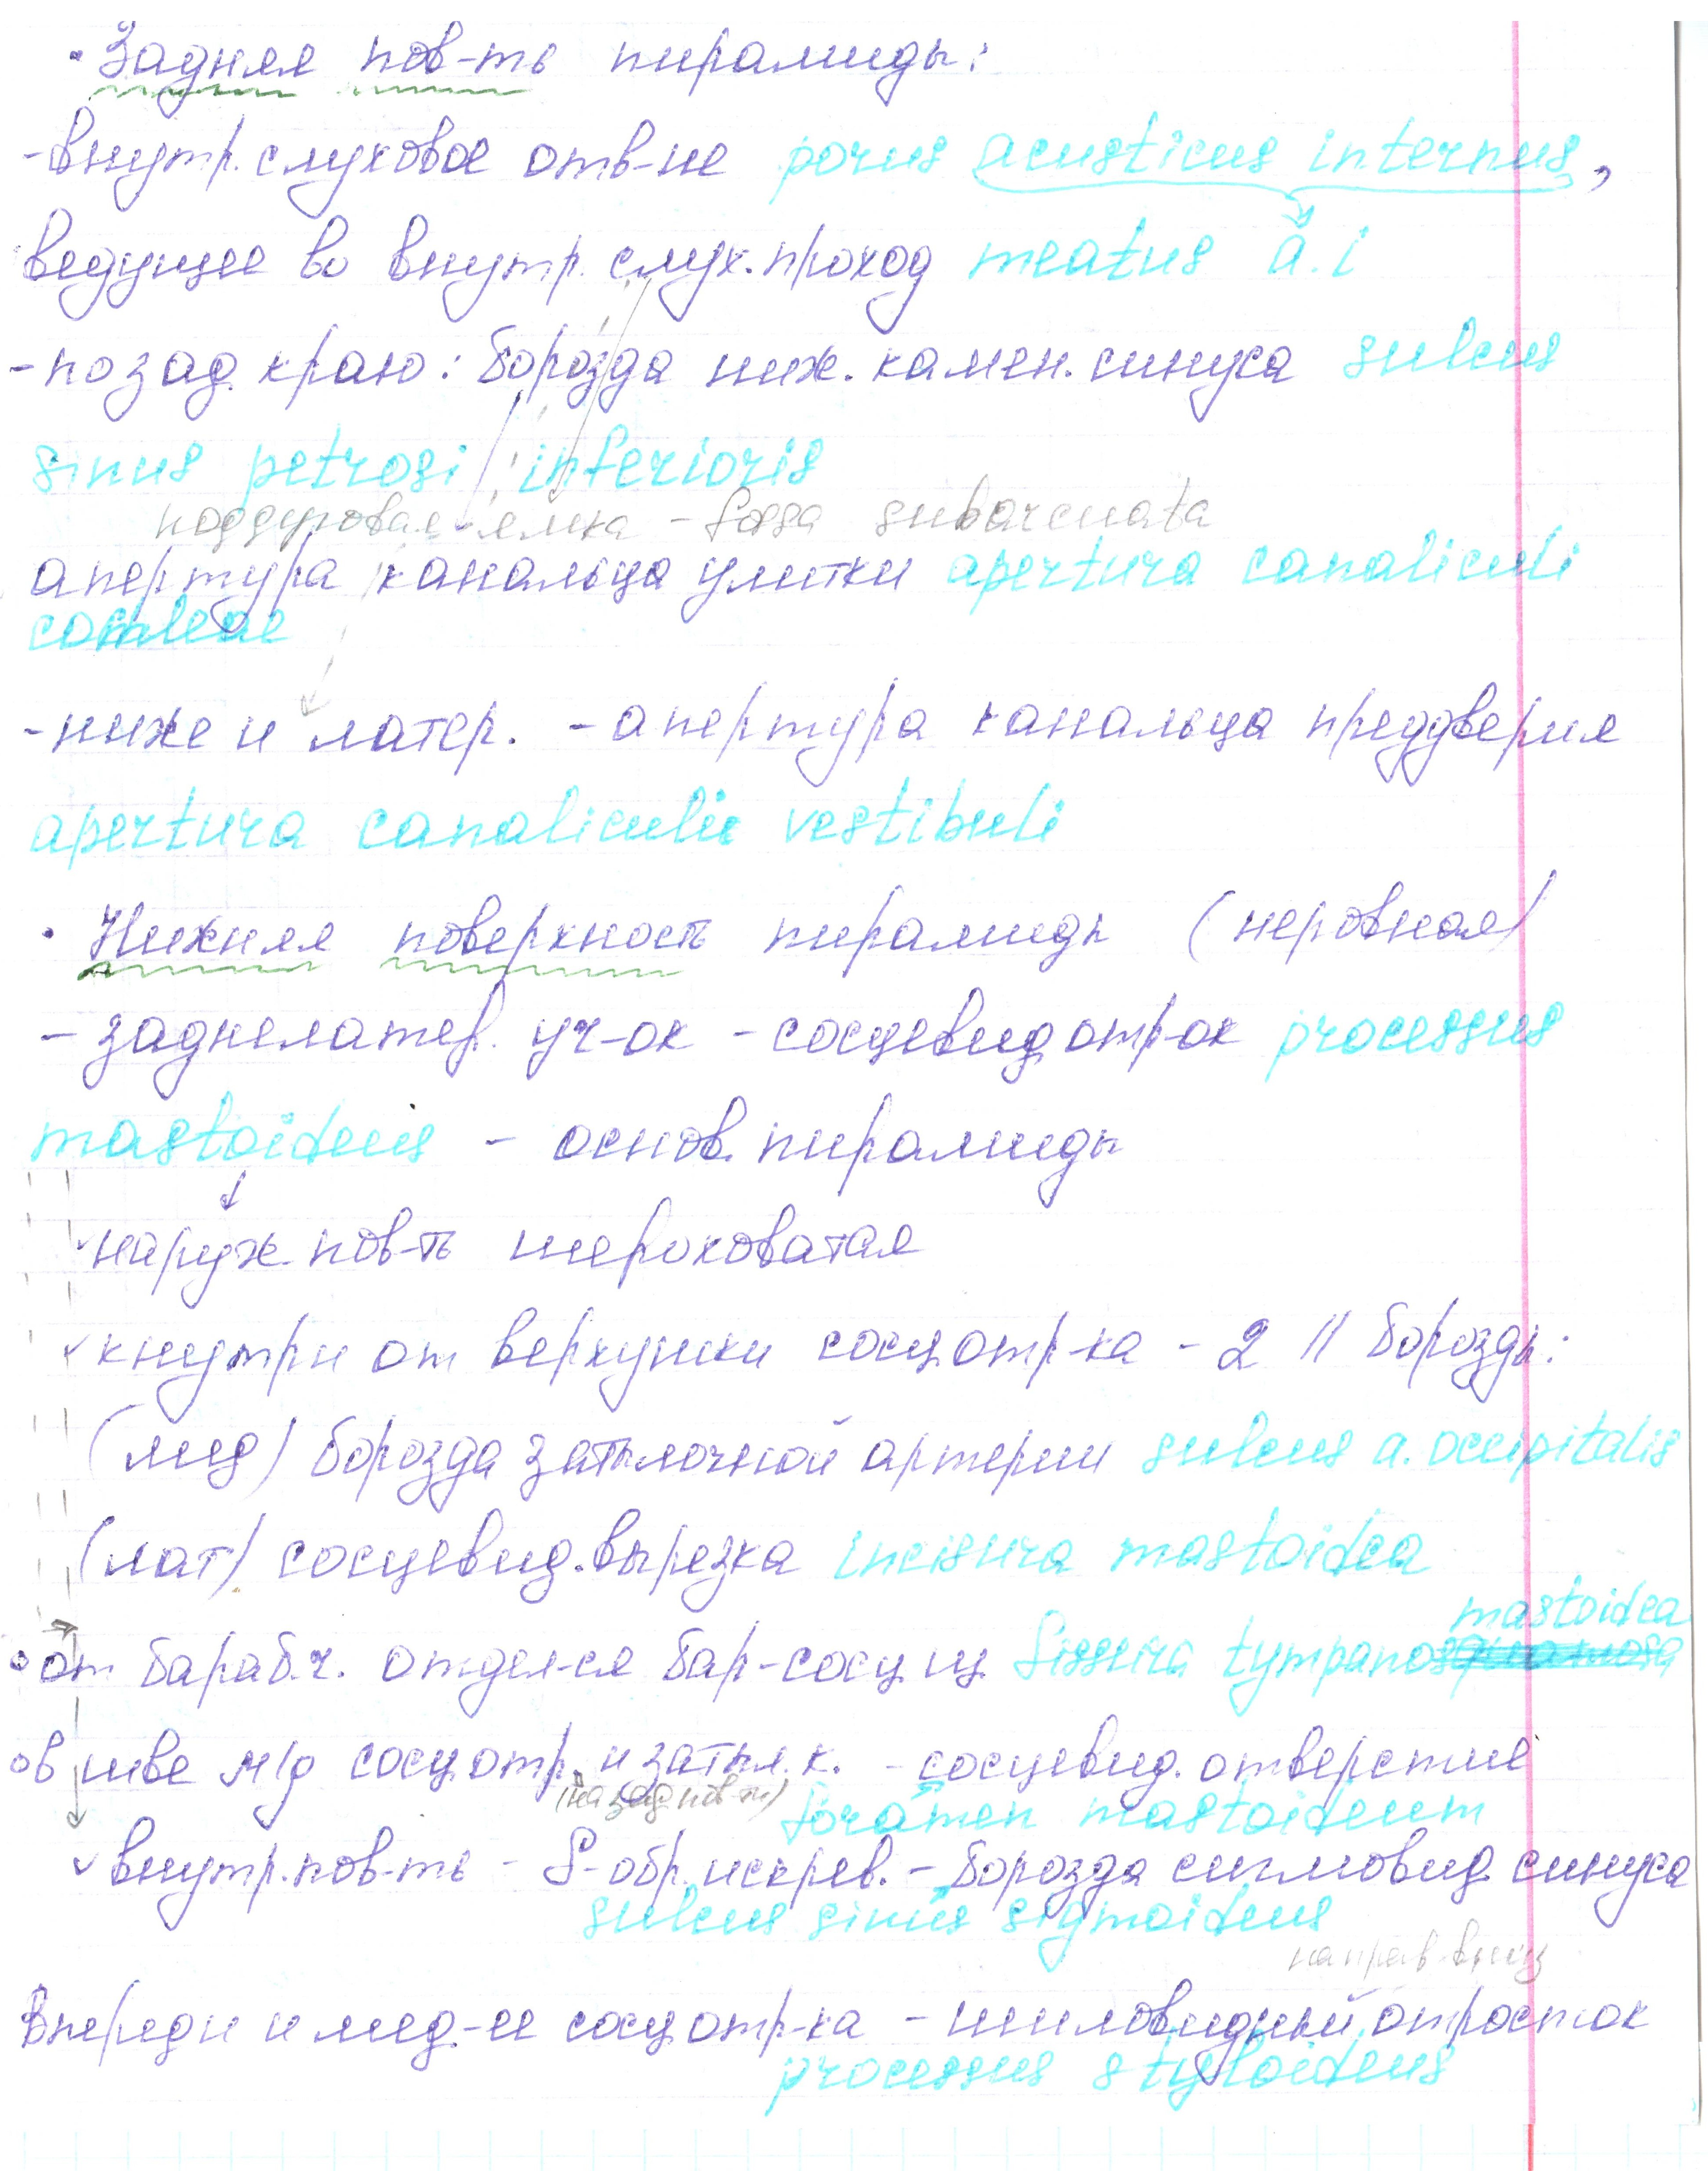 • Задняя пов-ть пирамиды:
-внутр. слуховое отв-ие porus acusticus internus,
ведущее во внутр. слух. проход meatus a. i
-по зад. краю: борозда ниж. камен. синуса sulcus
sinus petrosi inferioris
поддуговая ямка - fossa subarcuata
апертура канальца улитки apertura canaliculi
cochleae
-ниже и латер. - апертура канальца преддверия
apertura canaliculi vestibuli
• Нижняя поверхность пирамиды (неровная)
- заднелатер. уч-ок - сосцевид отр-ок processus
mastoideus - основ. пирамиды
наруж. пов-ть шероховатая
кнутри от верхушки сосц отр-ка - 2 || борозды:
(мед) борозда затылочной артерии sulcus a. occipitalis
(лат) сосцевид. вырезка incisura mastoidea
mastoidea
от бараб. ч. отдел-ся бар-сосц щ fissura tympano
в шве м/д сосц отр. и затыл. к. - сосцевид. отверстие
(на зад пов-ти) foramen mastoideum
внутр. пов-ть - S-обр. искрев. - борозда сигмовид синуса
sulcus sinus sigmoideus
направ. вниз
Впереди и мед-ее сосц отр-ка - шиловидный отросток
processus styloideus